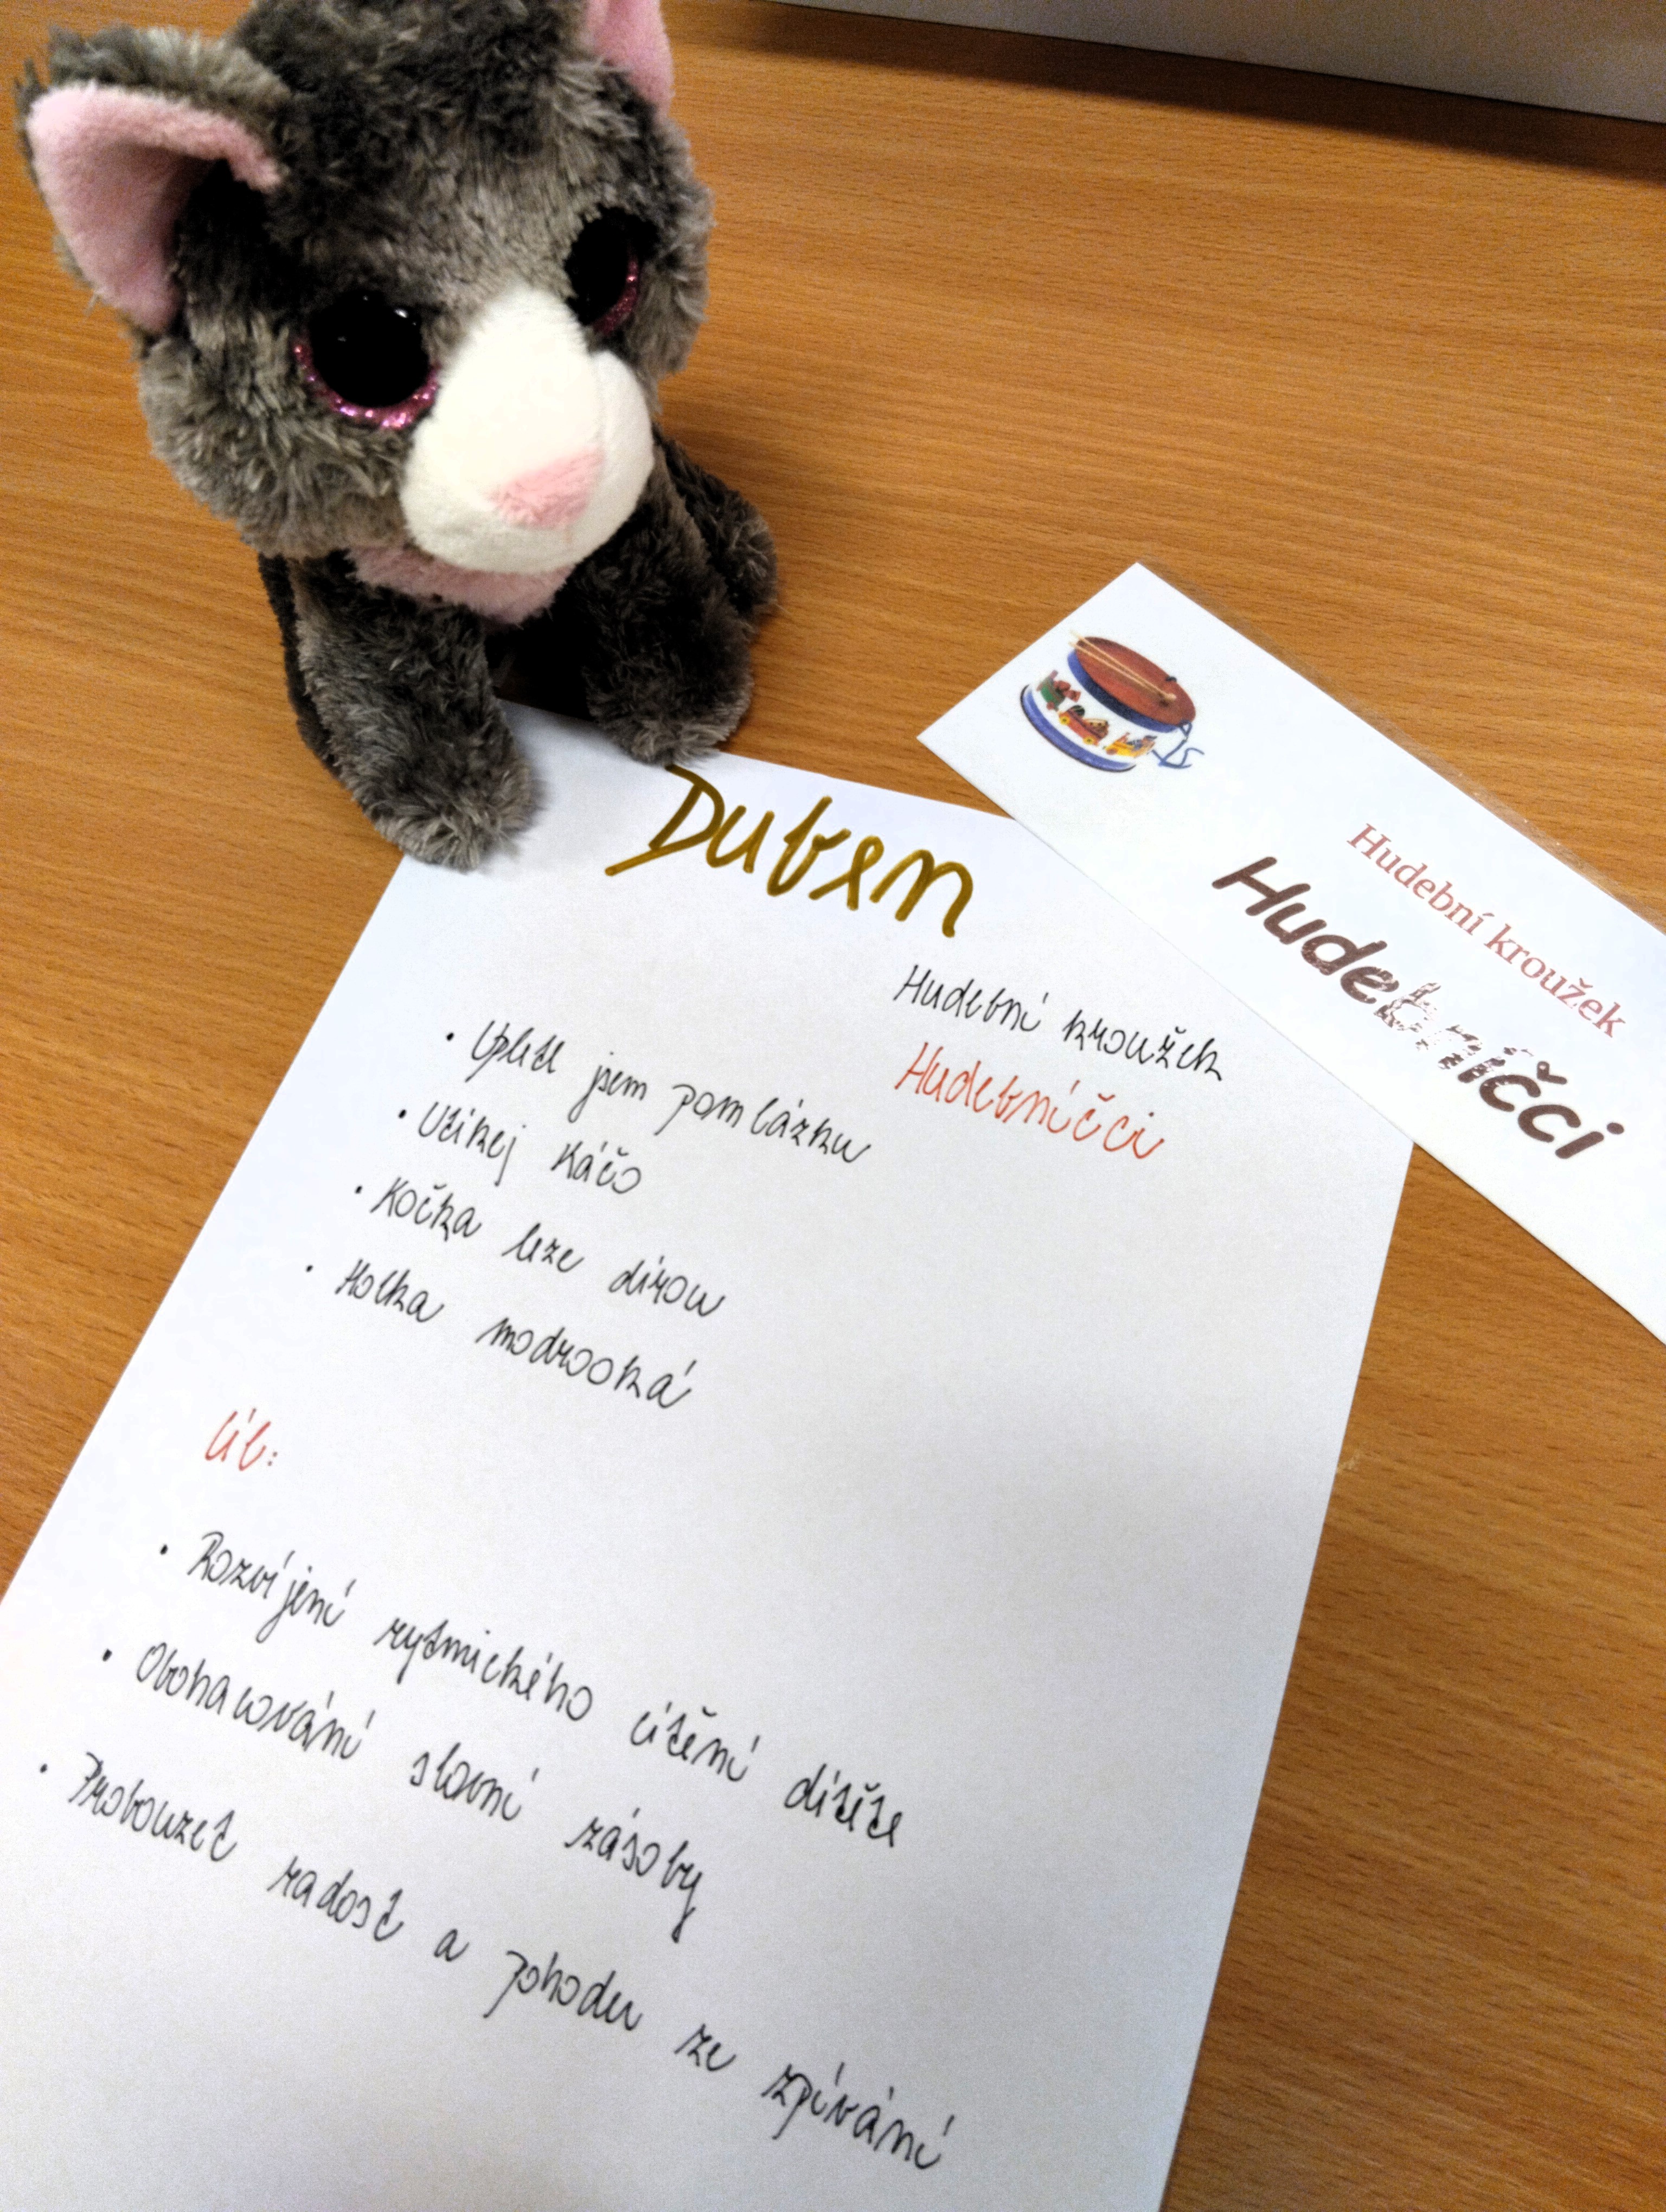 Duben
Hudební kroužek
Hudebníčci
• Upletl jsem pomlázku
• Utíkej Káčo
• Kočka leze dírou
• Holka modrooká
Cíl:
• Rozvíjení rytmického cítění dítěte
• Obohacování slovní zásoby
• Probouzet radost a pohodu ze zpívání
Hudební kroužek
Hudebníčci